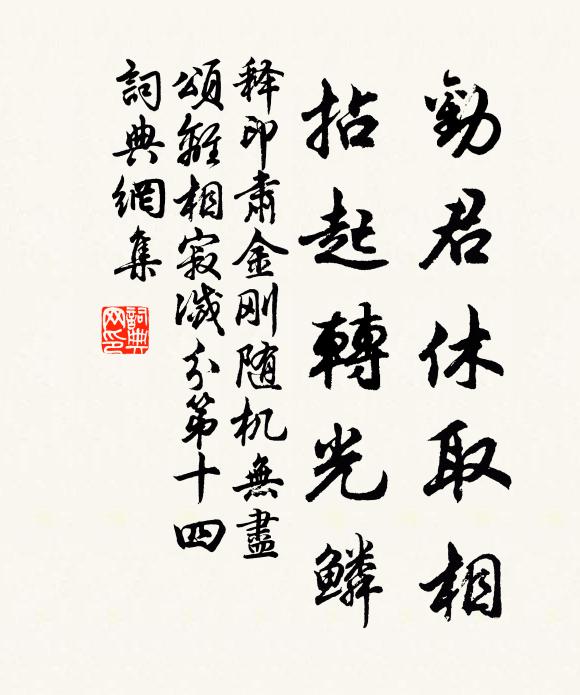 勸君休取相
拈起轉光鱗
释印肃金刚随机無盡
頌離相寂滅分第十四
詞典網集
詞典網印